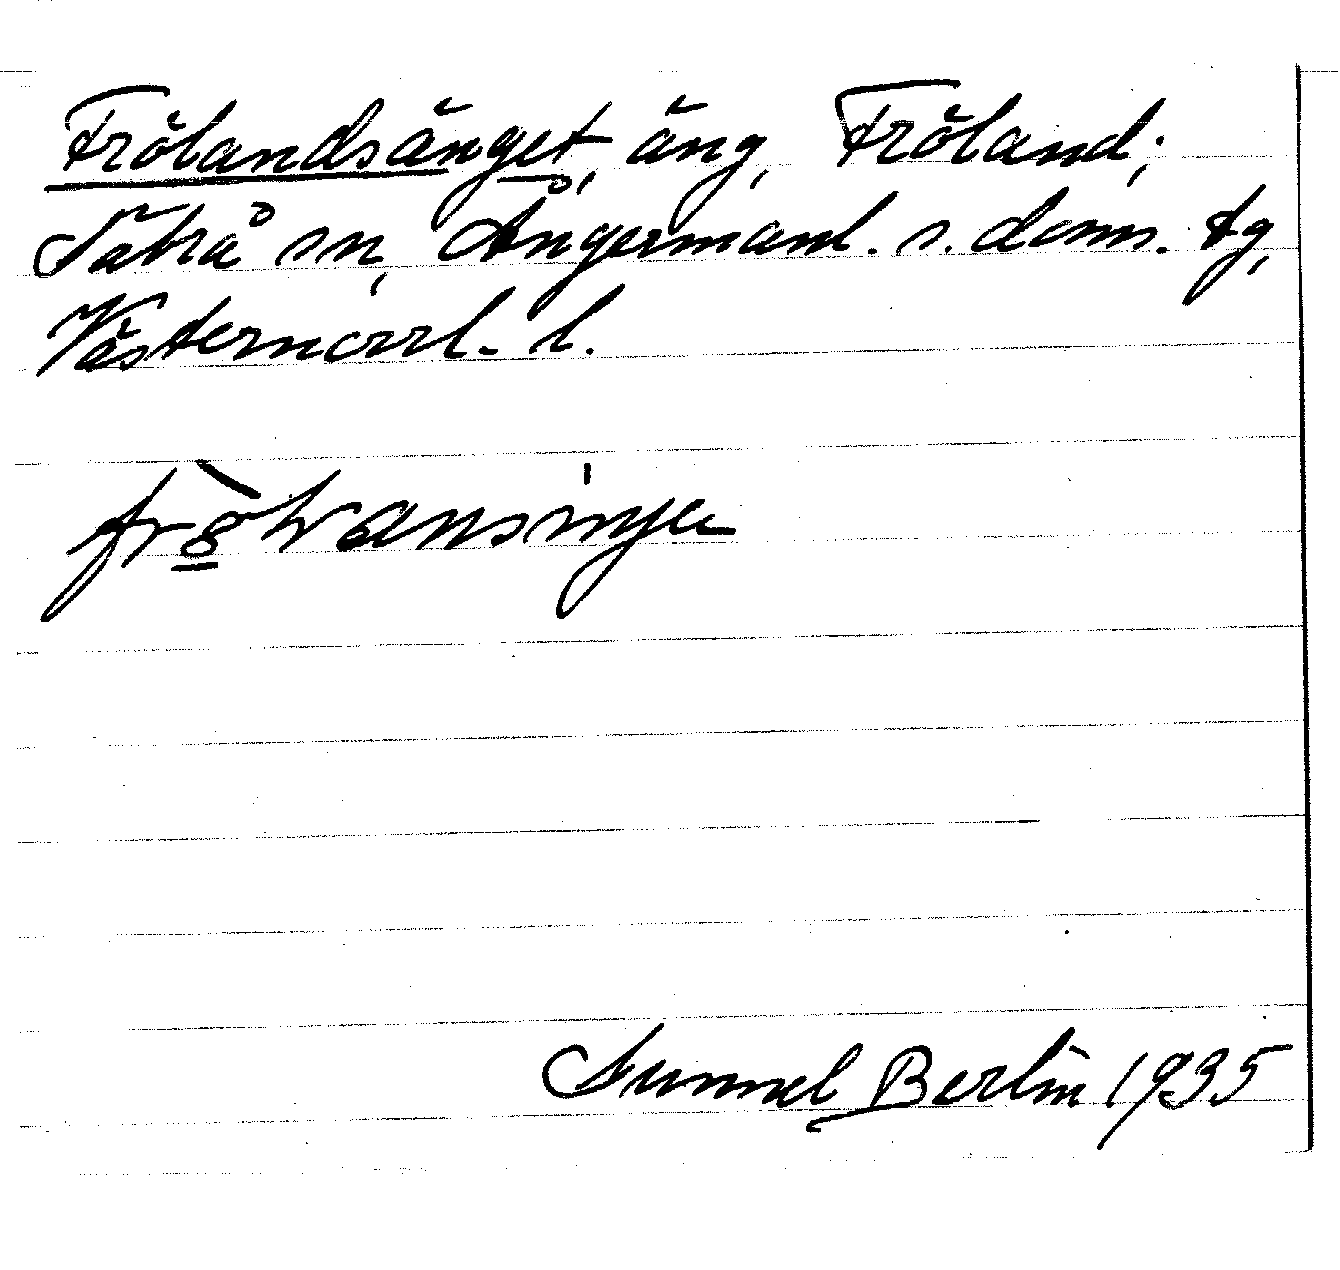 Frölandsänget, äng, Fröland;
Sätrå sn, Ångermanl. s. doms. tg,
Västernorrl. l.
Gunnel Berlin 1935